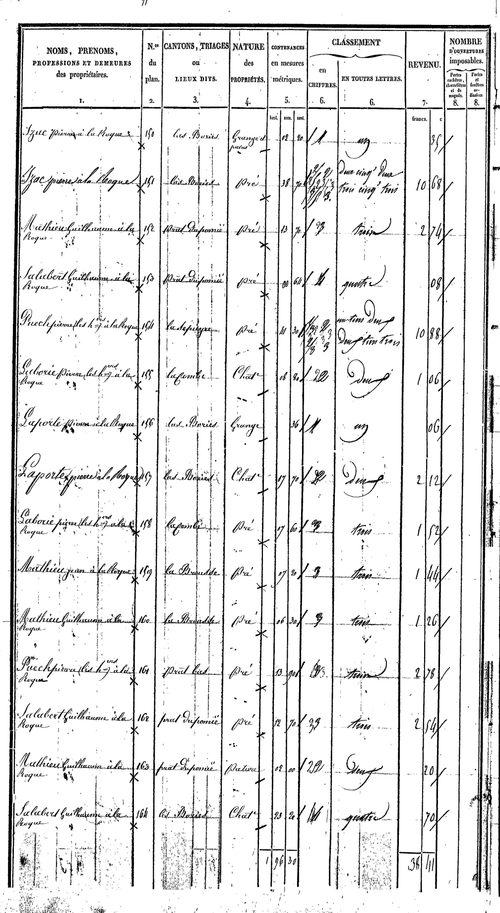 NOMS, PRENOMS, PROFESSIONS ET DEMEURES des propriétaires. N.os du plan. CANTONS, TRIAGES ou LIEUX DITS. NATURE des PROPRIÉTÉS. CONTENANCES en mesures métriques. CLASSEMENT en CHIFFRES. EN TOUTES LETTRES. REVENU. NOMBRE D'OUVERTURES imposables.
1. 2. 3. 4. 5. 6. 6. 7. 8. 8.
francs. c
Izac pierre à la Roque 150 las Bories Grange et 02 20 1 un 35
Izac pierre à la Roque 151 las Bories pré 38 70 deux cinq deux trois cinq trois 10 68
Mathieu Guilhaume à la Roque 152 prat Duponié pré 13 70 3 trois 2 74
Salabert Guilhaume à la Roque 153 prat Duponié pré 00 60 4 quatre 08
Puech pierre (les h.) à la Roque 154 pré 41 30 10 88
Laborie pierre (les h.) à la Roque 155 la Combe Chat. 08 80 2 Deux 1 06
Laporte pierre à la Roque 156 las Bories Grange 36 1 un 06
Laporte pierre à la Roque 157 las Bories Chat. 17 70 2 Deux 2 12
Laborie pierre (les h.) à la Roque 158 la Combe pré 07 60 3 trois 1 52
Mathieu jean à la Roque 159 pré 07 20 3 trois 1 44
Mathieu Guilhaume à la Roque 160 pré 06 30 3 trois 1 26
Puech pierre (les h.) à la Roque 161 prat bas pré 13 90 3 trois 2 78
Salabert Guilhaume à la Roque 162 prat Duponié pré 12 70 3 trois 2 54
Mathieu Guilhaume à la Roque 163 prat Duponié pature 02 00 2 Deux 20
Salabert Guilhaume à la Roque 164 las Bories Chat. 23 20 4 quatre 70
1 96 30 38 41